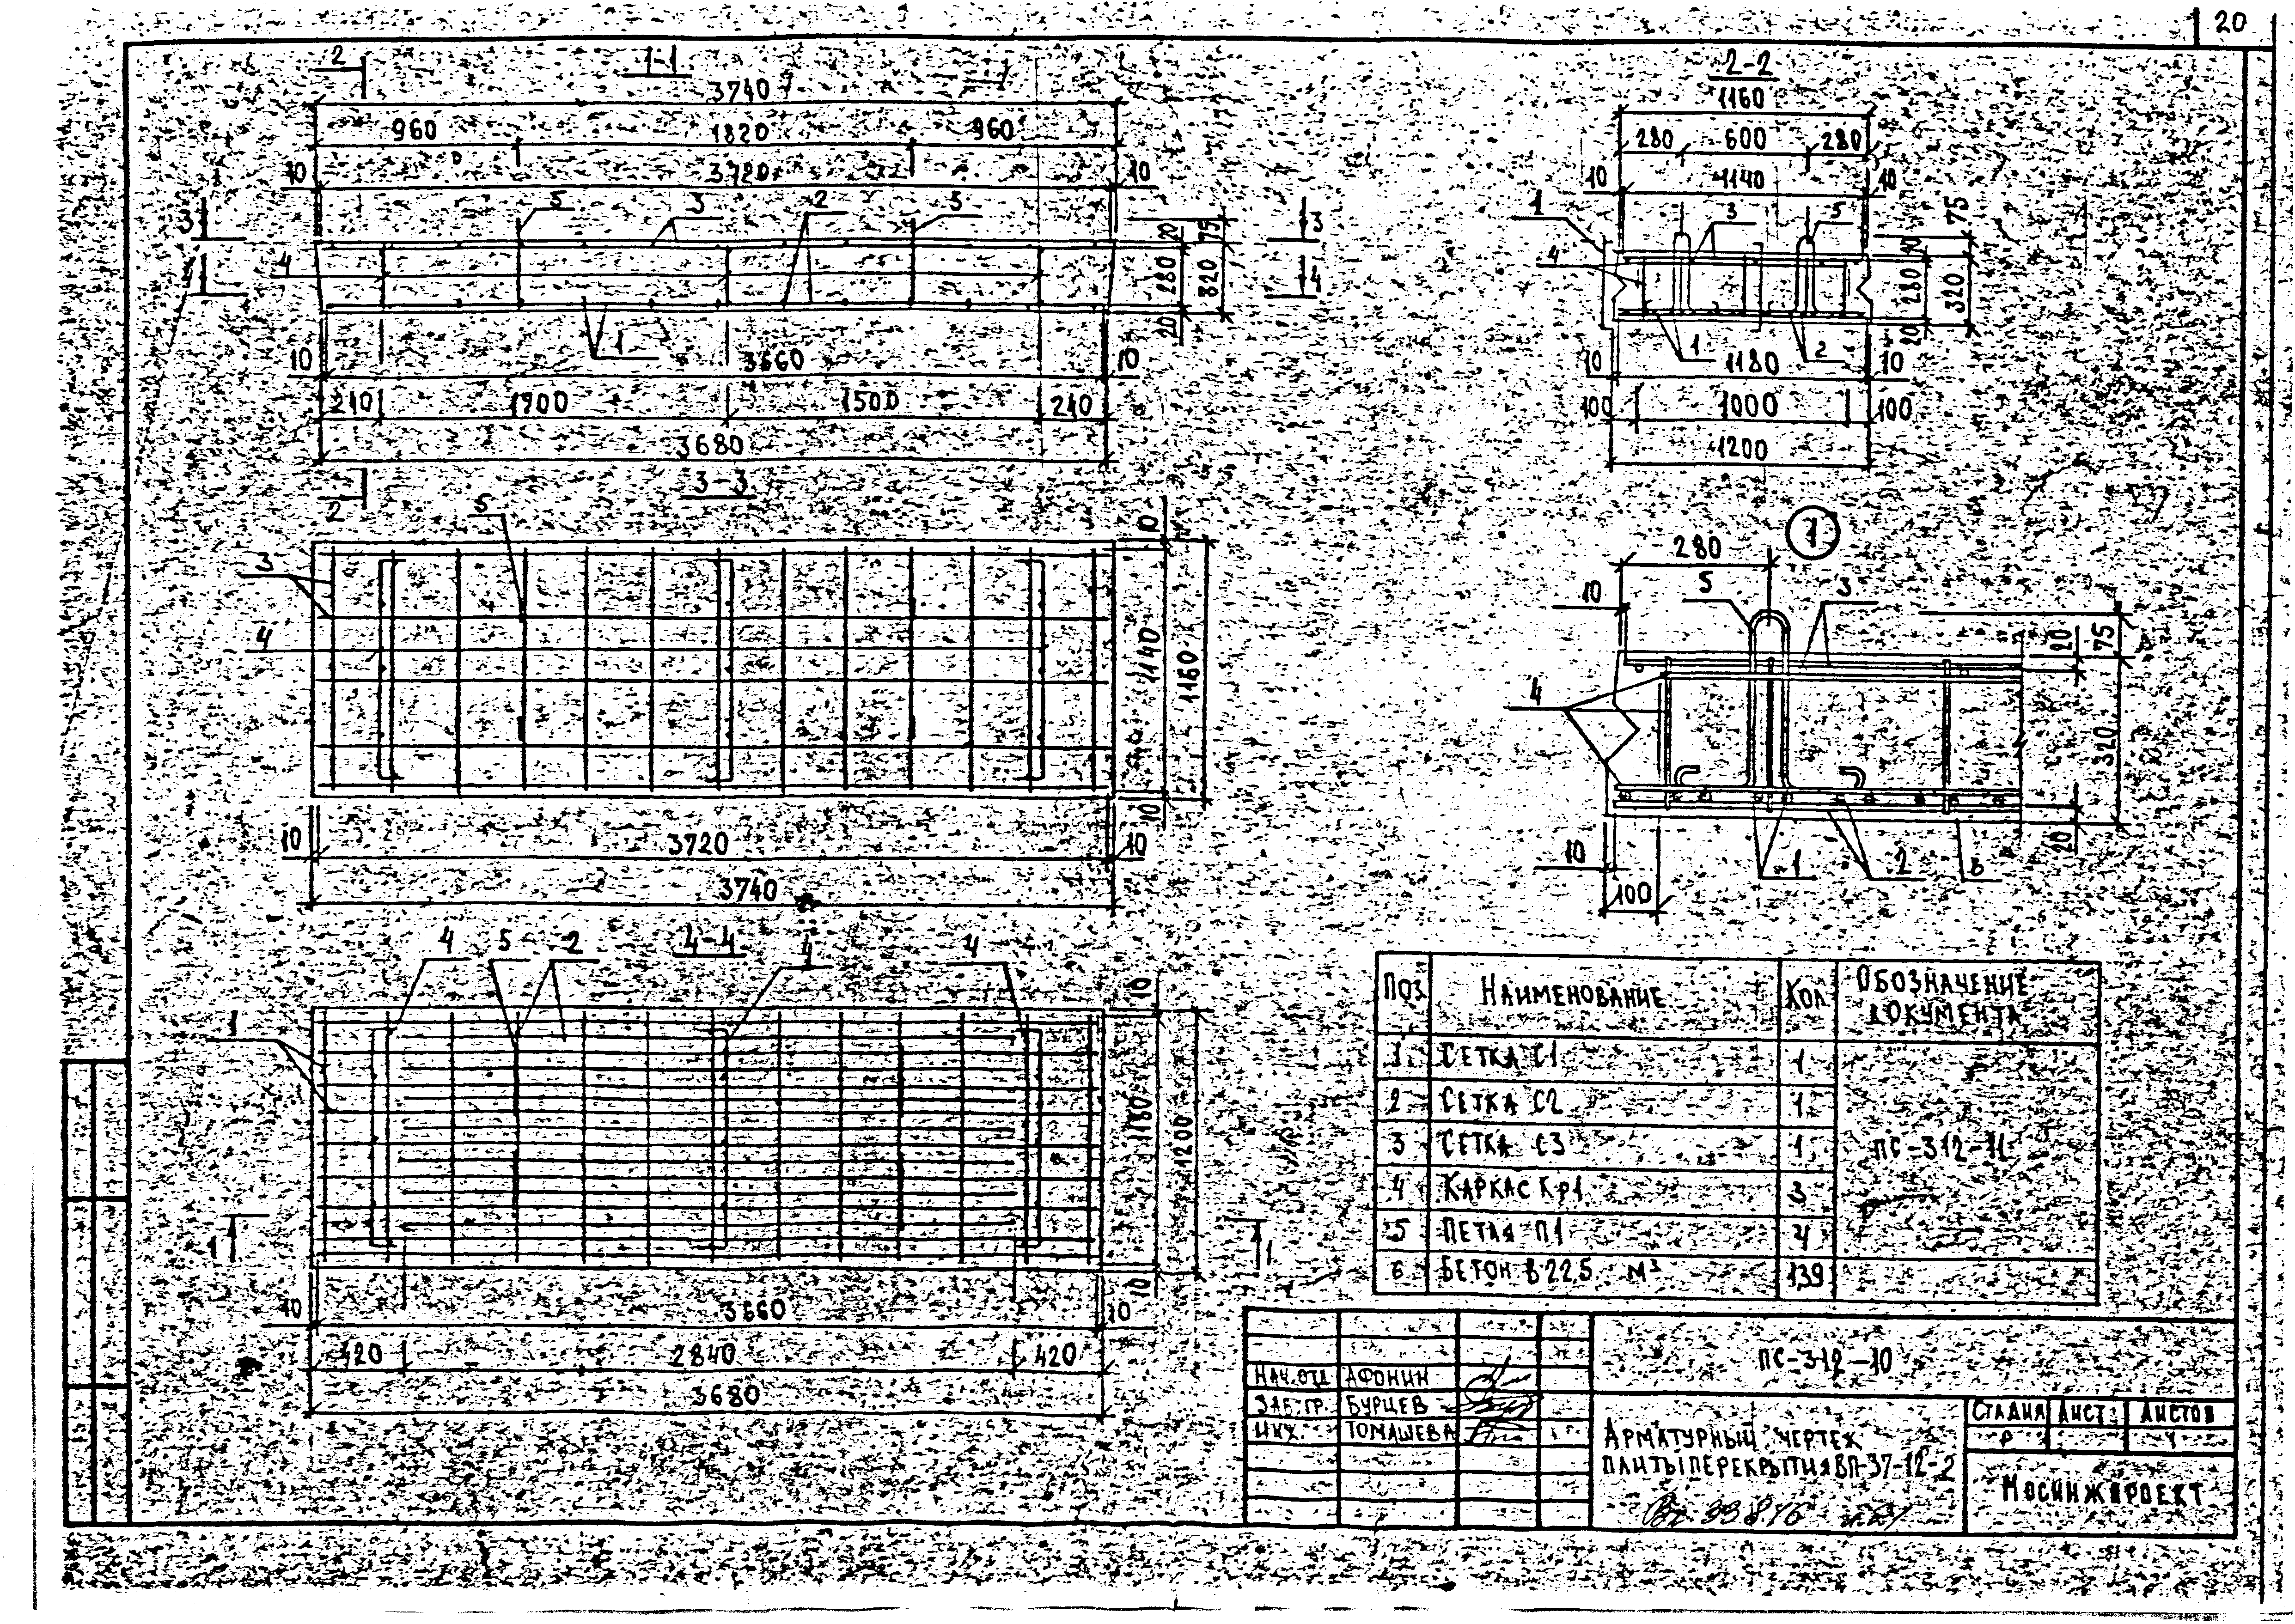 20
2
1-1
3740
960 1820 960
10 3720 10
5 3 2 5
3
4
10 75
280 320
20
3
4
1
10 3660 10
240 1700 1500 240
3680
2
2-2
1160
280 600 280
10 1140 10
1 3 5
4
75
10
280 320
20
1 2
10 1180 10
100 1000 100
1200
3-3
5
3
4
10
1140 1160
10
10 3720 10
3740
1
280
10 5 3
4
20 75
320
20
10
1 2 6
100
4-4
4 5 2 4 4
1
10
1180 1200
10
1
1
10 3660 10
420 2840 420
3680
Поз. Наименование Кол. Обозначение документа
1 Сетка С1 1
2 Сетка С2 1
3 Сетка С3 1 ПС-312-11
4 Каркас Кр1 3
5 Петля П1 4
6 Бетон В22.5 м³ 1,39
ПС-312-10
Нач. отд. Афонин
Зав. гр. Бурцев
Инж. Томашева
Арматурный чертеж
плиты перекрытия ВП-37-12-2
Стадия Лист Листов
Р 1
Мосинжпроект